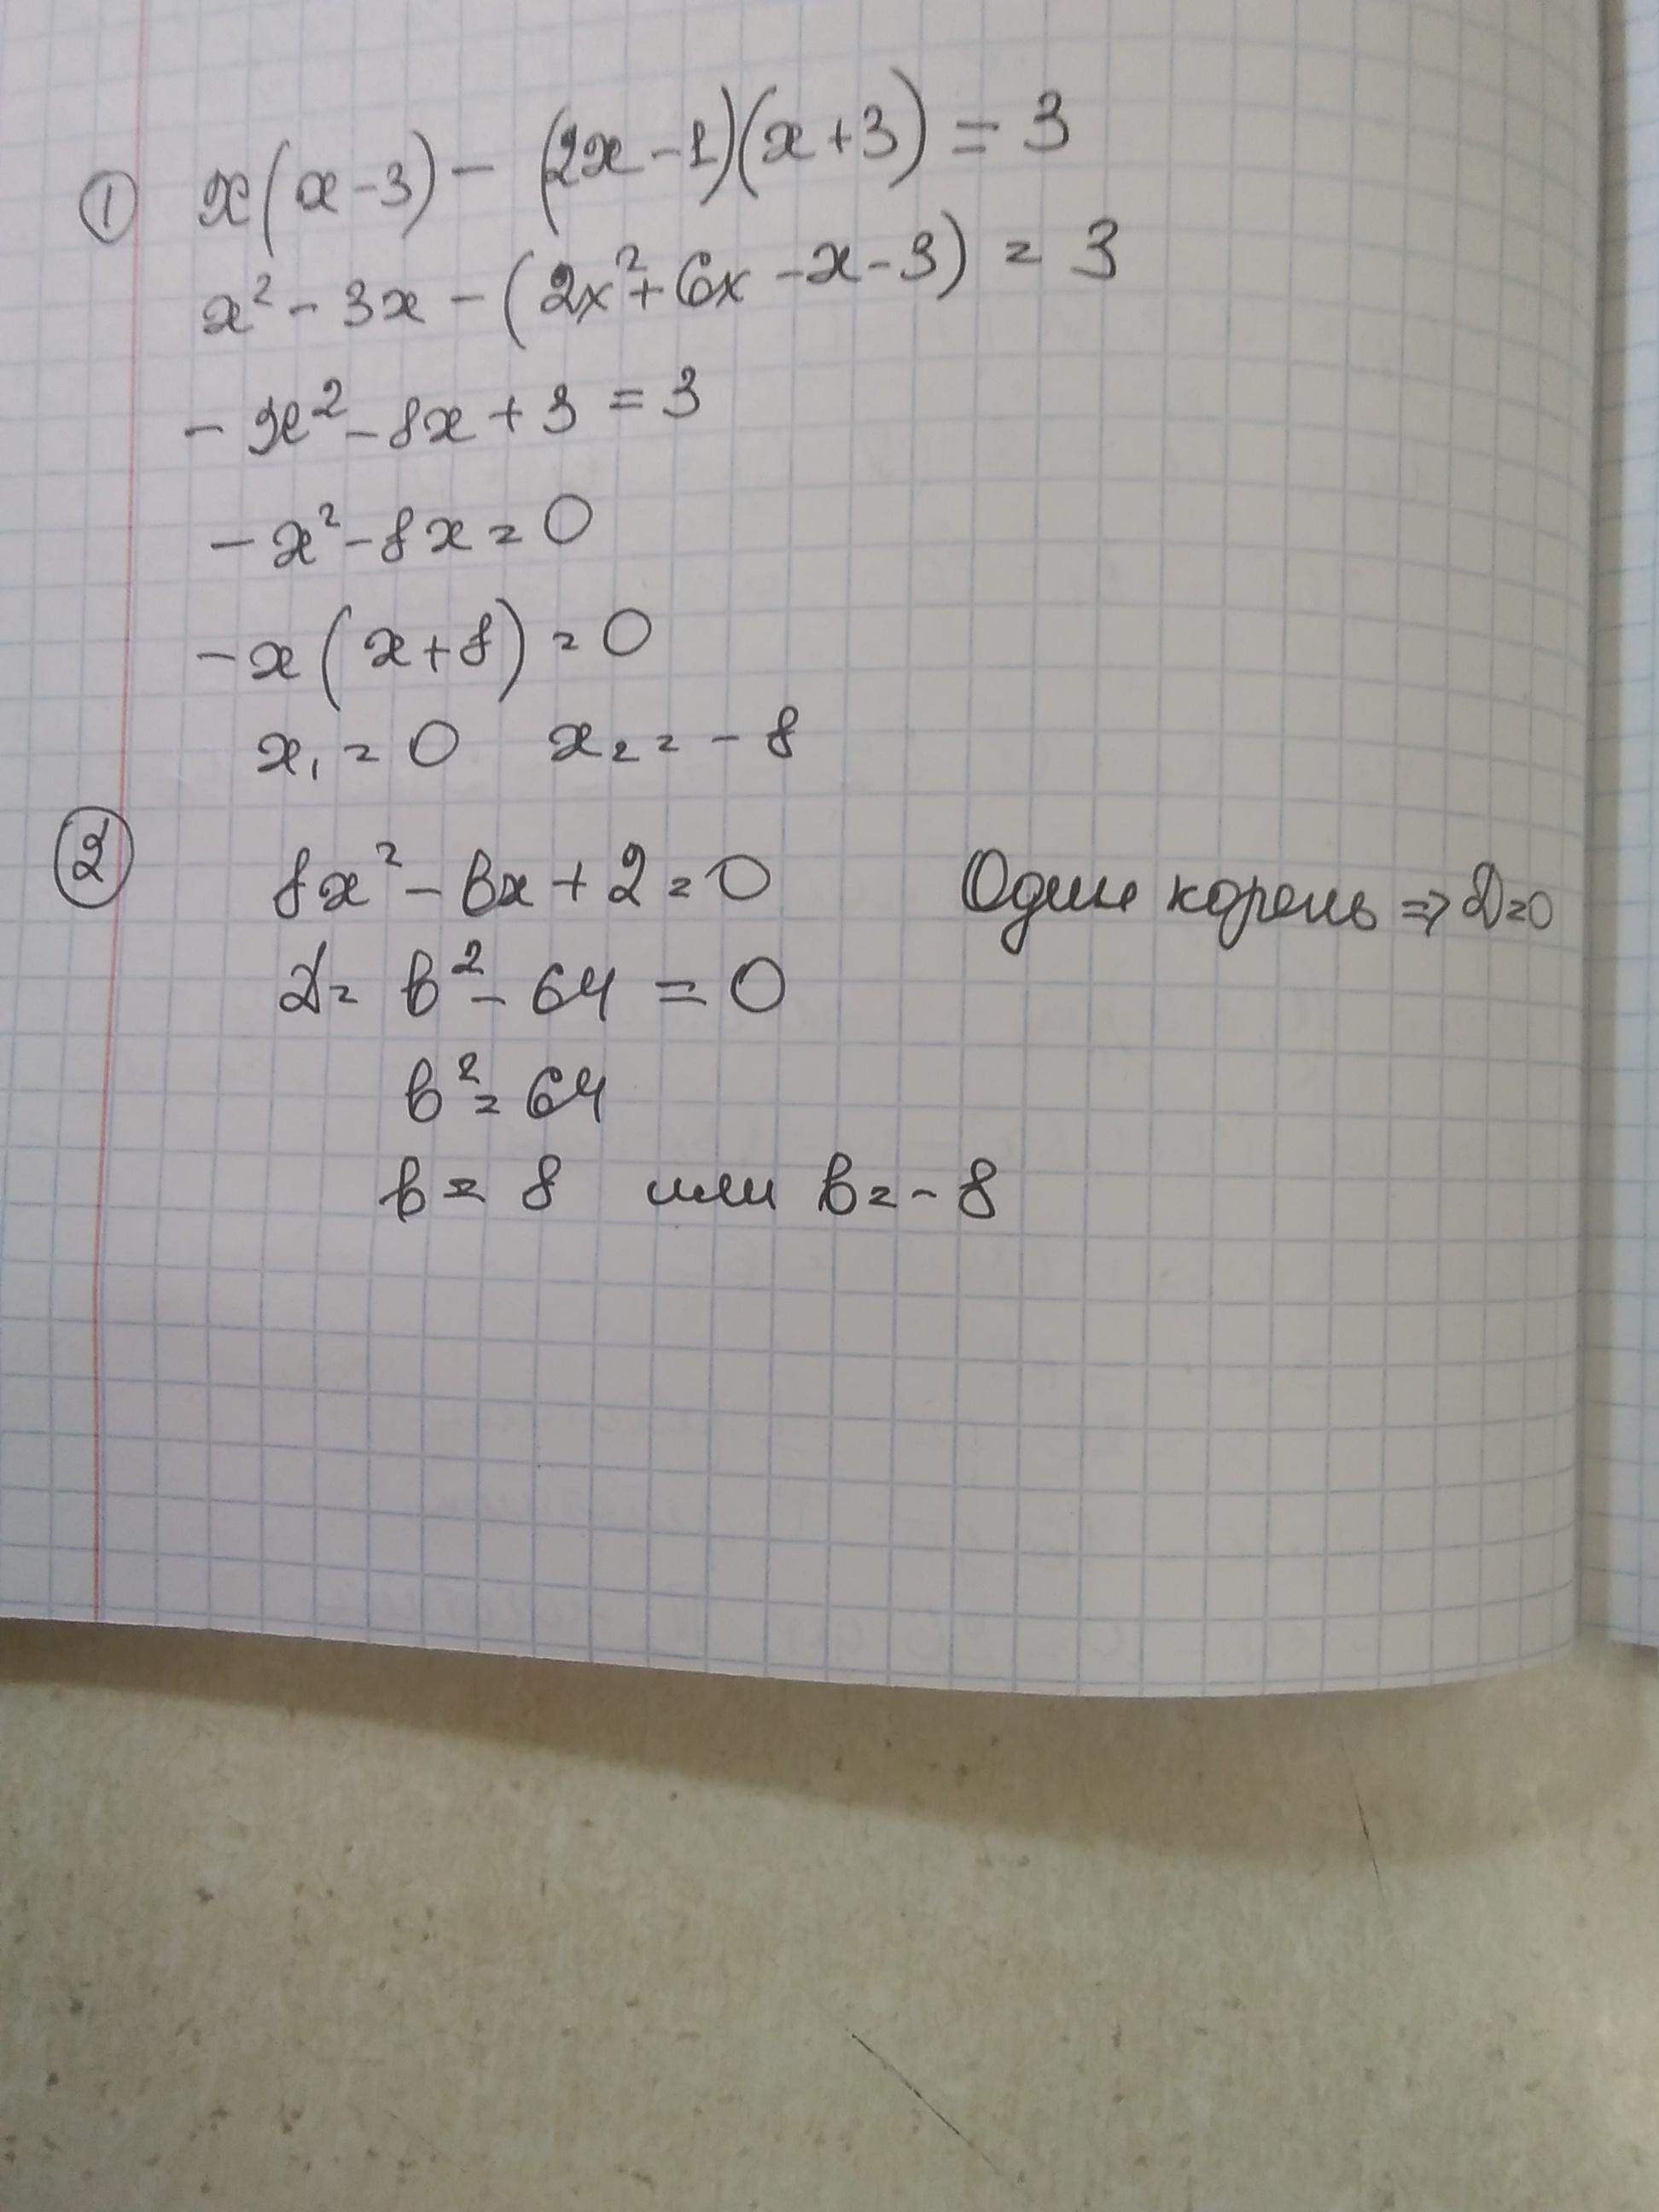 ① x(x-3) - (2x-1)(x+3) = 3
x² - 3x - (2x² + 6x - x - 3) = 3
- x² - 8x + 3 = 3
- x² - 8x = 0
- x(x+8) = 0
x₁ = 0 x₂ = - 8
② 8x² - вx + 2 = 0 Один корень ⇒ D=0
D = в² - 64 = 0
в² = 64
в = 8 или в = - 8